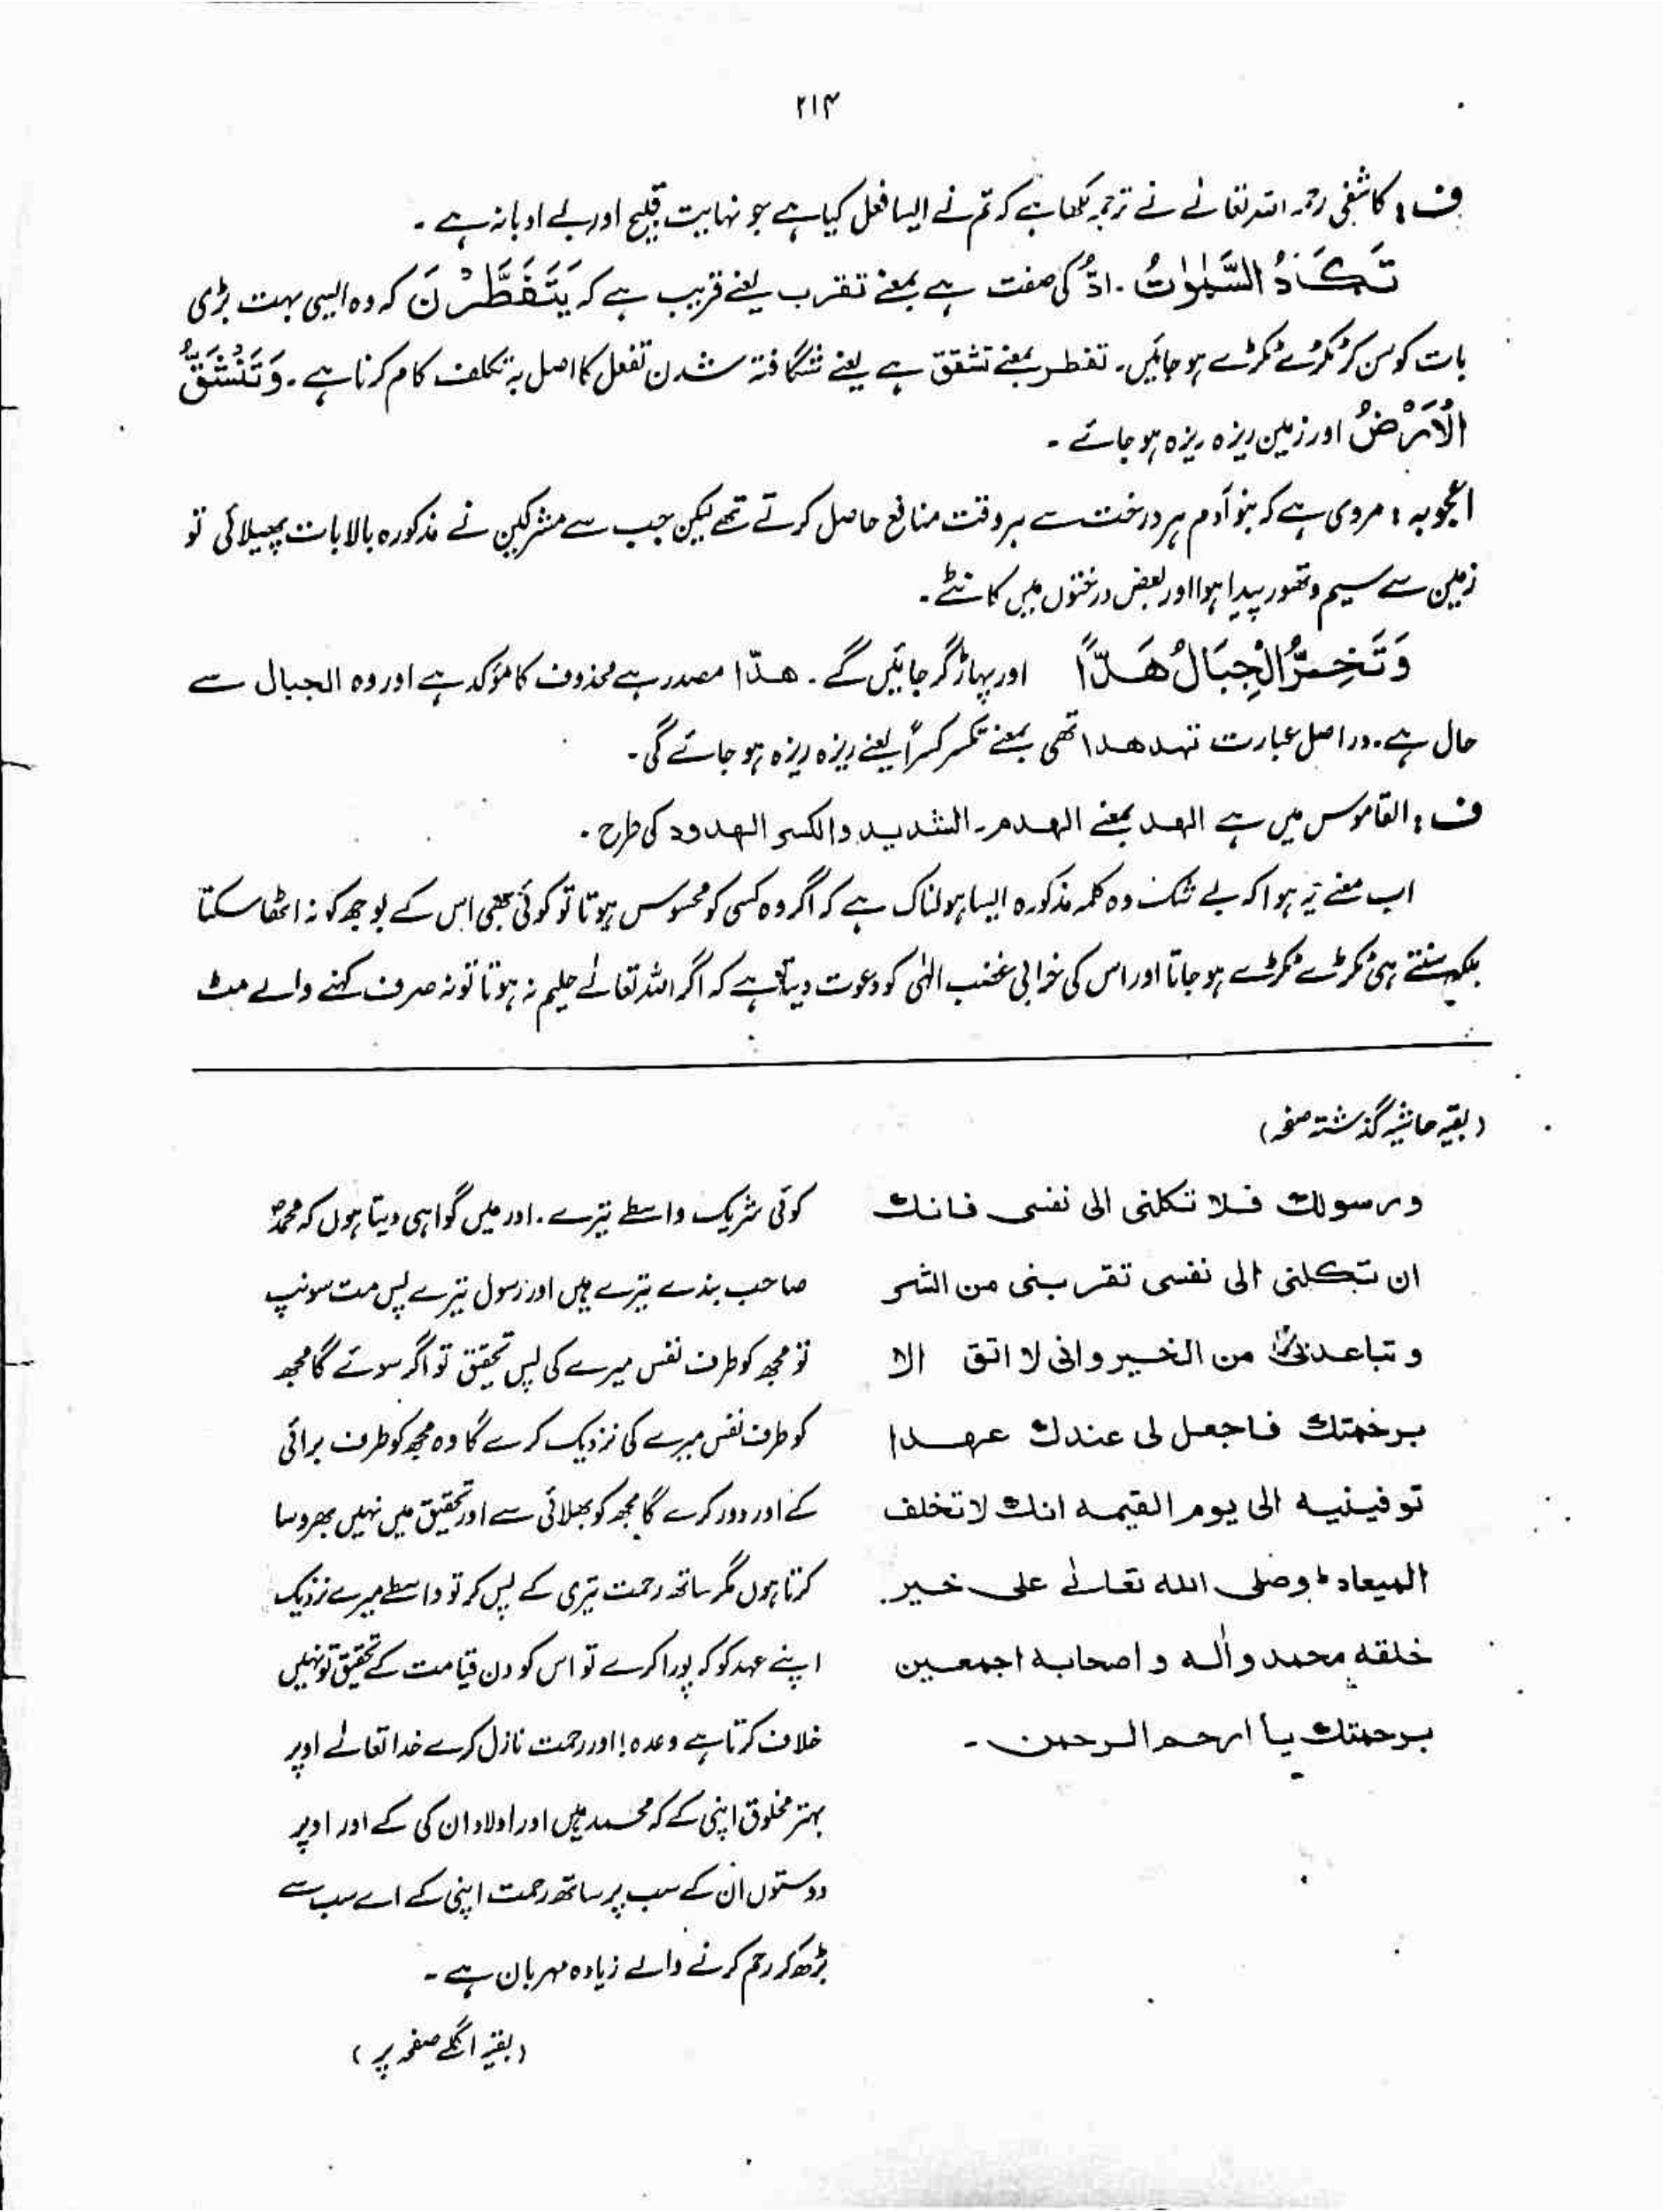 ۲۱۴
ف : کاشفی رحمہ اللہ تعالٰے نے ترجمہ لکھا ہے کہ تم نے ایسا فعل کیا ہے جو نہایت قبیح اور بے ادبانہ ہے ۔
تَکَادُ السَّمٰوٰتُ ۔ ادًّ کی صفت ہے بمعنے تقرب یعنے قریب ہے کہ یَتَفَطَّرْنَ کہ وہ ایسی بہت بڑی
بات کو سن کر ٹکڑے ٹکڑے ہو جائیں۔ تفطر بمعنے تشقق ہے یعنے شگافتہ شدن تفعل کا اصل بہ تکلف کام کرنا ہے ۔ وَتَنْشَقُّ
الْاَرْضُ اور زمین ریزہ ریزہ ہو جائے ۔
اعجوبہ : مروی ہے کہ بنو آدم ہر درخت سے ہر وقت منافع حاصل کرتے تھے لیکن جب سے مشرکین نے مذکورہ بالا بات پھیلائی تو
زمین سے سیم و تھور پیدا ہوا اور بعض درختوں میں کانٹے ۔
وَتَخِرُّ الْجِبَالُ هَدًّا اور پہاڑ گر جائیں گے ۔ ھدًّا مصدر ہے محذوف کا مؤکد ہے اور وہ الجبال سے
حال ہے ۔ دراصل عبارت تهد هدا تھی بمعنے تکسر کسراً یعنے ریزہ ریزہ ہو جائے گی ۔
ف : القاموس میں ہے الهد بمعنے الهدم الشدید والکسر الهدود کی طرح ۔
اب معنے یہ ہوا کہ بے شک وہ کلمہ مذکورہ ایسا ہولناک ہے کہ اگر وہ کسی کو محسوس ہوتا تو کوئی بھی اس کے بوجھ کو نہ اٹھا سکتا
بلکہ سنتے ہی ٹکڑے ٹکڑے ہو جاتا اور اس کی خرابی غضب الٰہی کو دعوت دیتا ہے کہ اگر اللہ تعالٰے حلیم نہ ہوتا تو نہ صرف کہنے والے مٹ
(بقیہ حاشیہ گذشتہ صفحہ)
ورسولك فلا تكلنى الى نفسى فانك
ان تكلنى الى نفسى تقربنى من الشر
و تباعدنى من الخير وانى لا اتق الا
برحمتك فاجعل لى عندك عهدا
توفينيه الى يوم القيمه انك لا تخلف
الميعاد وصلى الله تعالٰے على خير
خلقه محمد واٰله و اصحابه اجمعين
برحمتك يا ارحم الرحمين ۔
کوئی شریک واسطے تیرے ۔ اور میں گواہی دیتا ہوں کہ محمدؐ
صاحب بندے تیرے ہیں اور رسول تیرے پس مت سونپ
تو مجھ کو طرف نفس میرے کی پس تحقیق تو اگر سونے گا مجھ
کو طرف نفس میرے کی نزدیک کرے گا وہ مجھ کو طرف برائی
کے اور دور کرے گا مجھ کو بھلائی سے اور تحقیق میں نہیں بھروسا
کرتا ہوں مگر ساتھ رحمت تیری کے پس کر تو واسطے میرے نزدیک
اپنے عہد کو کہ پورا کرے تو اس کو دن قیامت کے تحقیق تو نہیں
خلاف کرتا ہے وعدہ ! اور رحمت نازل کرے خدا تعالٰے اوپر
بہتر مخلوق اپنی کے کہ محمد ہیں اور اولاد ان کی کے اور اوپر
دوستوں ان کے سب پر ساتھ رحمت اپنی کے اے سب سے
بڑھ کر رحم کرنے والے زیادہ مہربان ہے ۔
(بقیہ اگلے صفحہ پر)